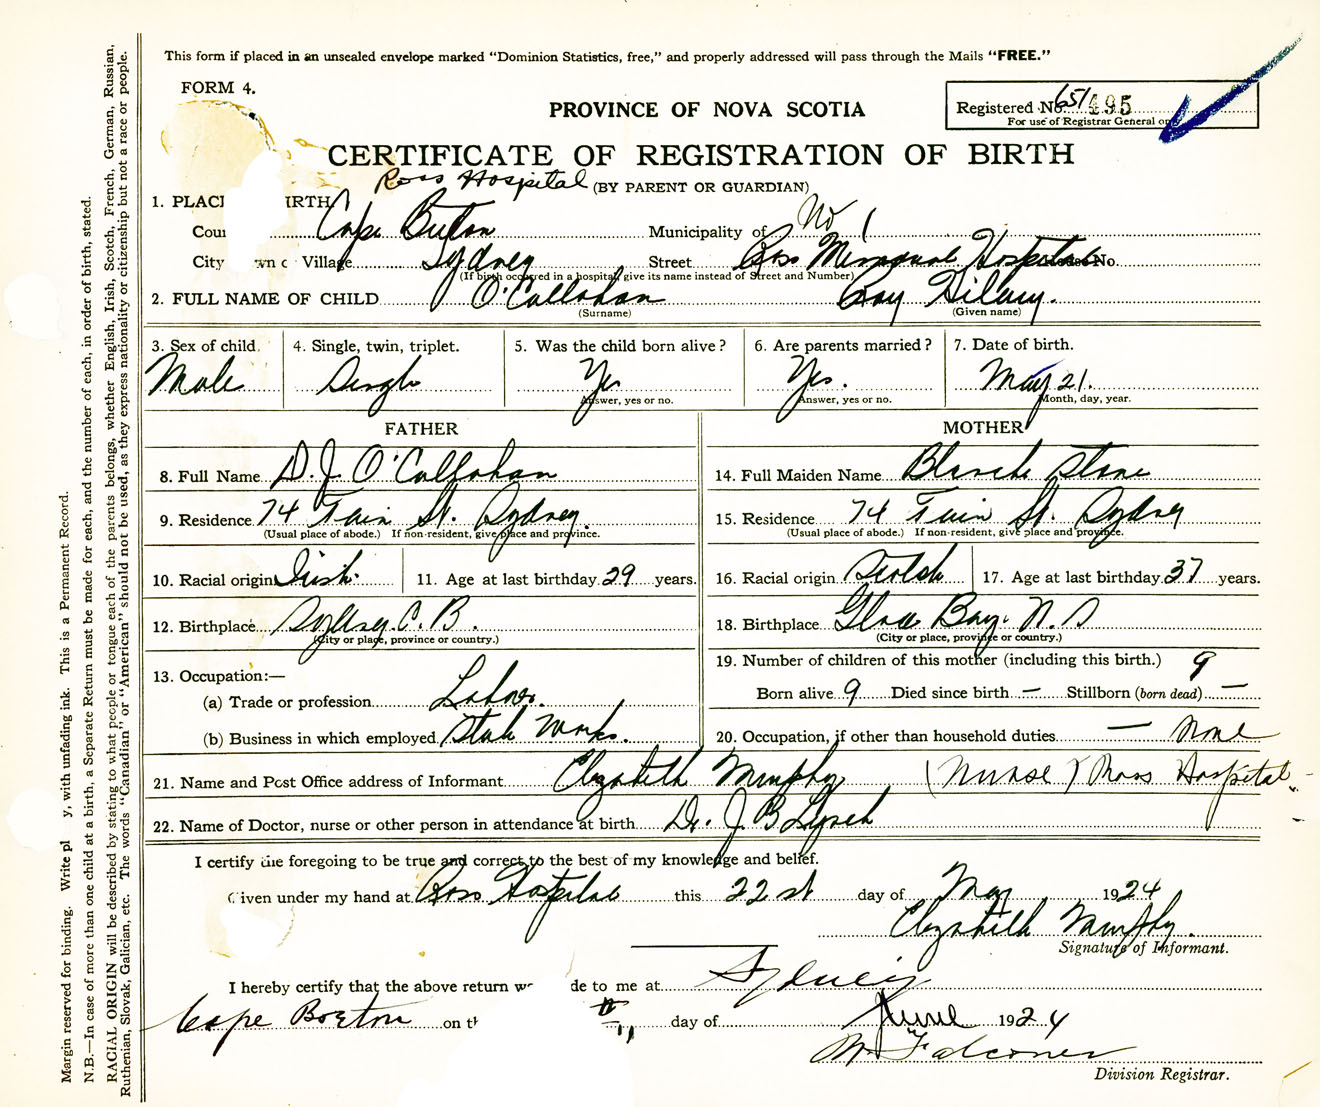 This form if placed in an unsealed envelope marked “Dominion Statistics, free,” and properly addressed will pass through the Mails “FREE.”
FORM 4.
PROVINCE OF NOVA SCOTIA
Registered No. 651495
For use of Registrar General on
CERTIFICATE OF REGISTRATION OF BIRTH
Ross Hospital (BY PARENT OR GUARDIAN)
1. PLACE BIRTH
Cou Cape Breton Municipality of No 1
City wn Village Sydney Street Ross Memorial Hospital House No.
(If birth occurred in a hospital, give its name instead of Street and Number)
2. FULL NAME OF CHILD O'Callahan Hilary.
(Surname) (Given name)
3. Sex of child. 4. Single, twin, triplet. 5. Was the child born alive? 6. Are parents married? 7. Date of birth.
Male Single Yes Yes. May 21.
Answer, yes or no. Answer, yes or no. Month, day, year.
FATHER MOTHER
8. Full Name D. J. O'Callahan 14. Full Maiden Name Blanche Stone
9. Residence 74 St. Sydney. 15. Residence 74 St. Sydney
(Usual place of abode.) If non-resident, give place and province. (Usual place of abode.) If non-resident, give place and province.
10. Racial origin Irish. 11. Age at last birthday 29 years. 16. Racial origin Scotch 17. Age at last birthday 37 years.
12. Birthplace Sydney C. B. 18. Birthplace Glace Bay. N. S
(City or place, province or country.) (City or place, province or country.)
13. Occupation:— 19. Number of children of this mother (including this birth.) 9
(a) Trade or profession Labor. Born alive 9 Died since birth — Stillborn (born dead) —
(b) Business in which employed Steel Works. 20. Occupation, if other than household duties — None
21. Name and Post Office address of Informant Elizabeth Murphy (Nurse) Ross Hospital
22. Name of Doctor, nurse or other person in attendance at birth Dr. J B Lynch
I certify the foregoing to be true and correct to the best of my knowledge and belief.
Given under my hand at Ross Hospital this 22 st day of May 1924
Elizabeth Murphy.
Signature of Informant.
I hereby certify that the above return w de to me at Sydney
Cape Breton on th day of June 1924
M Falconer
Division Registrar.
Margin reserved for binding. Write pl y, with unfading ink. This is a Permanent Record.
N.B.—In case of more than one child at a birth, a Separate Return must be made for each, and the number of each, in order of birth, stated.
RACIAL ORIGIN will be described by stating to what people or tongue each of the parents belongs, whether English, Irish, Scotch, French, German, Russian,
Ruthenian, Slovak, Galician, etc. The words “Canadian” or “American” should not be used, as they express nationality or citizenship but not a race or people.